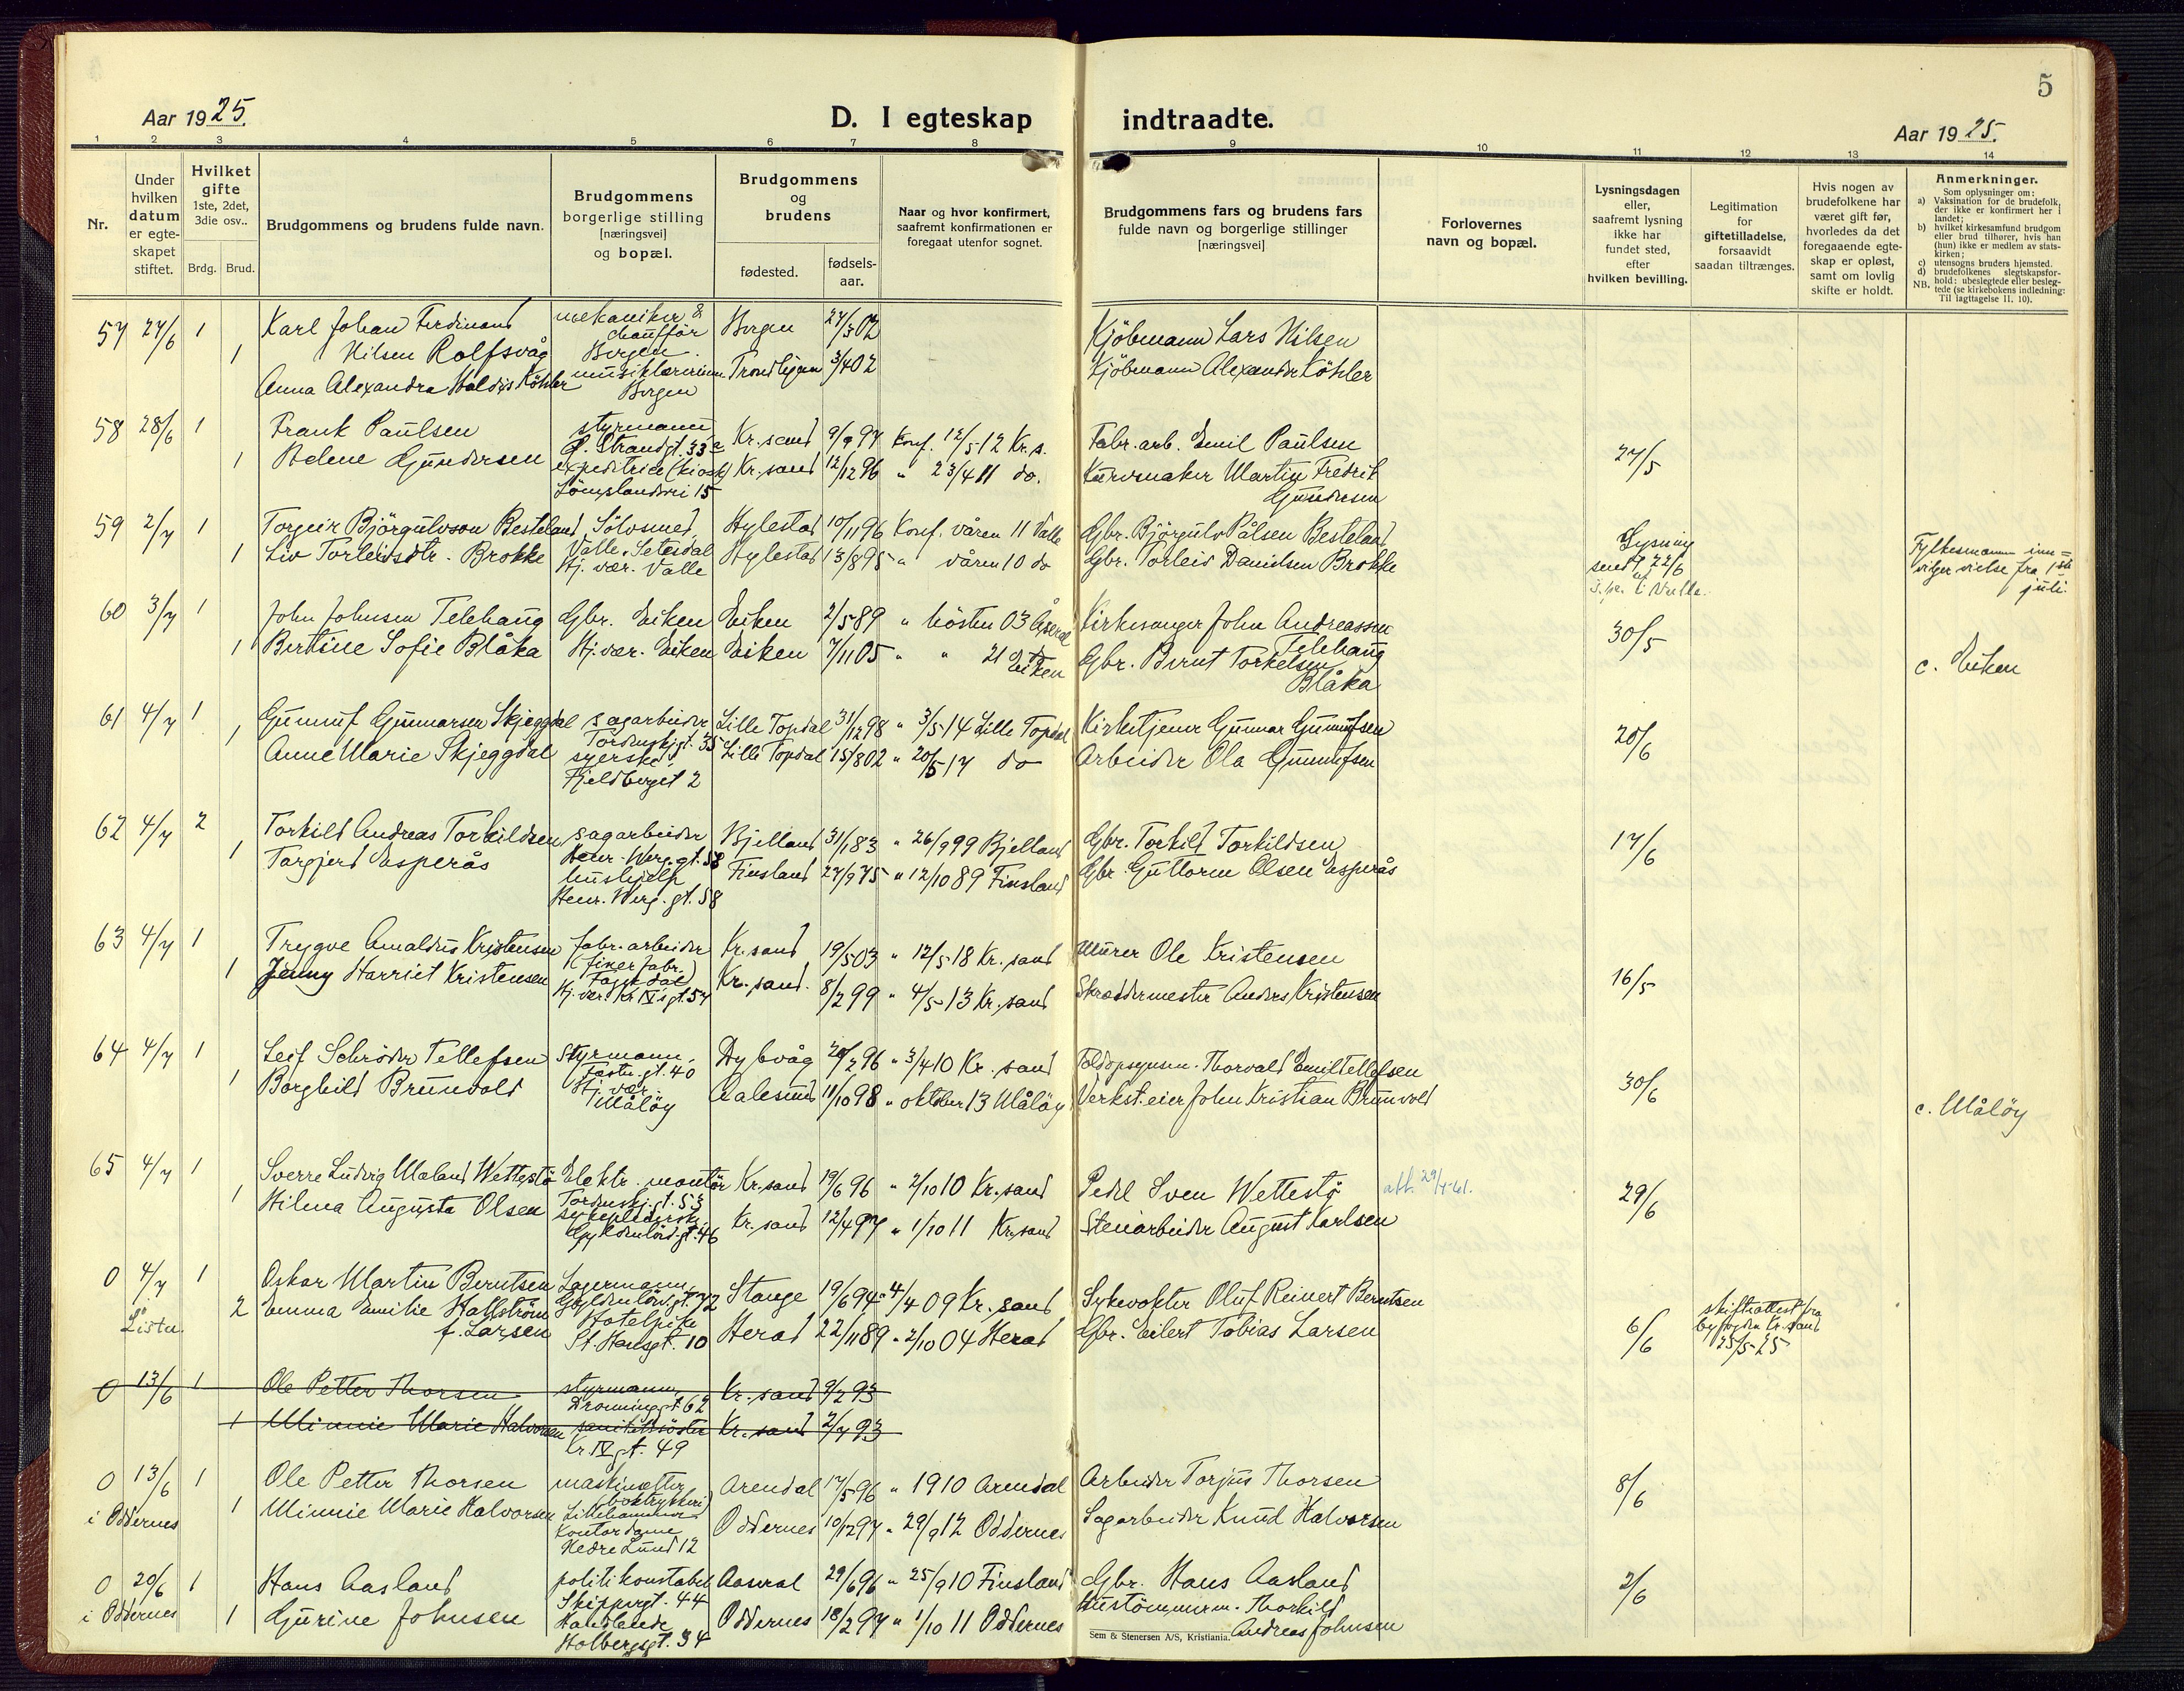 5
Aar 1925.
D. I egteskap indtraadte.
Aar 1925.
1 2 3 4 5 6 7 8 9 10 11 12 13 14
Nr.
Under hvilken datum er egte-skapet stiftet.
Hvilket gifte 1ste, 2det, 3die osv..
Brdg. Brud.
Brudgommens og brudens fulde navn.
Brudgommens borgerlige stilling [næringsvei] og bopæl.
Brudgommens og brudens
fødested.
fødsels-aar.
Naar og hvor konfirmert, saafremt konfirmationen er foregaat utenfor sognet.
Brudgommens fars og brudens fars fulde navn og borgerlige stillinger [næringsvei]
Forlovernes navn og bopæl.
Lysningsdagen eller, saafremt lysning ikke har fundet sted, efter hvilken bevilling.
Legitimation for giftetilladelse, forsaavidt saadan tiltrænges.
Hvis nogen av brudefolkene har været gift før, hvorledes da det foregaaende egte-skap er opløst, samt om lovlig skifte er holdt.
Anmerkninger.
Som oplysninger om:
a) Vaksination for de brudefolk, der ikke er konfirmert her i landet;
b) hvilket kirkesamfund brudgom eller brud tilhører, hvis han (hun) ikke er medlem av stats-kirken;
c) utensogns bruders hjemsted.
d) brudefolkenes slegtskapsfor-hold: ubeslegtede eller besleg-tede (se kirkebokens indledning:
NB. Til iagttagelse II. 10).
57 27/6 1 Karl Johan Ferdinand Nilsen Rolfsvåg mekaniker & chauffør Bergen. Bergen 27/3 02 Kjöbmann Lars Nilsen
1 Anna Alexandra Haldis Köhler musiklærerinne Bergen Trondhjem 3/4 02 Kjöbmann Alexander Köhler
58 28/6 1 Frank Paulsen styrmann Ø. Strandgt. 33a Kr.sand 9/9 97 Konf. 12/5-12 Kr.s. Fabr.arb. Emil Paulsen 27/5
1 Helene Gundersen expeditrice (kiosk) Lömslandsvei 15 Kr.sand 12/12 96 " 23/4 11 do. Kurvmaker Martin Fredrik Gundersen
59 2/7 1 Torgeir Björgulvson Besteland Sölvsmed, Valle, Setesdal Hylestad 10/11 96 Konf. våren 11 Valle Gbr. Björgulv Pålsen Besteland Lysning send 22/6 Valle. Fylkesmann inn= vilger vielse fra 1ste juli.
1 Liv Torleivsdtr. Brokke Hj. vær. Valle Hylestad 13/8 95 " våren 10 do Gbr. Torleiv Danielsen Brokke
60 3/7 1 John Johnsen Telehaug Gbr. Eiken Eiken 2/5 89 " hösten 03 Åseral Kirkesanger John Andreassen Telehaug 30/5
1 Bertine Sofie Blåka Hj. vær. Eiken Eiken 7/11 05 " " 21 Eiken Gbr. Bernt Torkelsen Blåka c. Eiken
61 4/7 1 Gunnuf Gunnarsen Skjeggdal sagarbeider Tordenskj.gt. 35 Lille Topdal 31/12 98 " 3/5-14 Lille Topdal Kirketjener Gunnar Gunnufsen 20/6
1 Anne Marie Skjeggdal syerske Fjeldberget 2 Lille Topdal 15/8 02 " 20/5 17 do Arbeider Ola Gunnufsen
62 4/7 2 Torkild Andreas Torkildsen sagarbeider Henr. Werg.gt. 58 Bjelland 31/1 83 " 26/9 99 Bjelland Gbr. Torkild Torkildsen 17/6
1 Targjerd Esperås hushjelp Henr. Werg.gt. 58 Finsland 27/9 75 " 12/10 89 Finsland Gbr. Guttorm Olsen Esperås
63 4/7 1 Trygve Amaldus Kristensen fabr.arbeider (finerfabr.) Fagerdal Kr.sand 19/5 03 " 12/5-18 Kr.sand Murer Ole Kristensen 16/5
1 Jenny Harriet Kristensen Hj. vær. Kr IV's gt. 57 Kr.sand. 8/2 99 " 4/5-13 Kr.sand Skræddermester Anders Kristensen
64 4/7 1 Leif Schröder Tellefsen Styrmann, Festn.gt. 40 Dybvåg 20/2 96 " 3/4 10 Kr.sand Toldopsynsm. Thorvald Emil Tellefsen 30/6
1 Borghild Brunvold Hj. vær. Måløy Aalesund 11/10 98 " oktober 13 Måløy Verkst.eier John Kristian Brunvold c. Måløy
65 4/7 1 Sverre Ludvig Maland Wettestö Elektr. montör Tordenskj.gt. 53 Kr.sand 19/6 96 " 2/10 10 Kr.sand Pedel Sven Wettestö att. 29/4-61. 29/6
1 Hilma Augusta Olsen sykepleierske Gyldenlövs.gt. 46 Kr.sand 12/4 97 " 1/10 11 Kr.sand Stenarbeider August Karlsen
0 4/7 1 Oskar Martin Berntsen Lagermann, Gyldenlövs.gt. 72 Stange 19/6 94 " 4/4 09 Kr.sand Sykevokter Oluf Reinert Berntsen 6/6 skifteattest fra byfogden Kr.sand 25/5-25
Lister. 2 Emma Emilie Hallström f. Larsen Hotelpike St. Hansgt. 10 Herad 22/11 89 " 2/10 04 Herad Gbr. Eilert Tobias Larsen
0 13/6 1 Ole Petter Thorsen styrmann, Dronninggt 62 Kr.sand 9/2 93
1 Minnie Marie Halvorsen sanitetssöster Kr IV gt. 49 Kr.sand 2/7 93
0 13/6 1 Ole Petter Thorsen maskinsetter (boktrykkeri) Lillehammer Arendal 17/5 96 " 1910 Arendal Arbeider Torjus Thorsen 8/6
i Oddernes 1 Minnie Marie Halvorsen Kontordame Nedre Lund 12 Oddernes 10/12 97 " 29/9 12 Oddernes Sagarbeider Knud Halvorsen
0 20/6 1 Hans Aasland politikonstabel Skippergt. 44 Aaseral 29/6 96 " 25/9 10 Finsland Gbr. Hans Aasland 2/6
i Oddernes 1 Gurine Johnsen Handlende Holbergsgt. 34 Oddernes 18/2 97 " 1/10 11 Oddernes Hustömmerm. Thorkild Andreas Johnsen
Sem & Stenersen A/S, Kristiania.